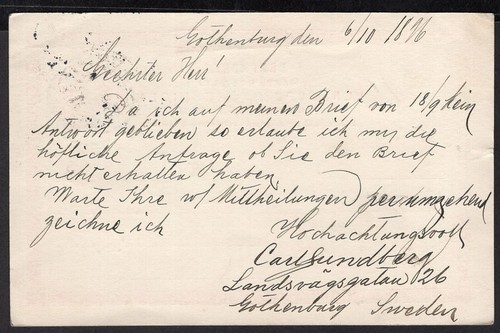 Gothenburg den 6/10 1896
Geehrter Herr!
Da ich auf meinen Brief von 18/9 kein
Antwort geblieben so erlaube ich my die
höfliche Anfrage ob Sie den Brief
nicht erhalten haben.
Warte Ihre w/ Mittheilungen per umgehend
zeichne ich
Hochachtungsvoll
Carl Sundberg
Landsvägsgatan 26
Gothenburg Sweden